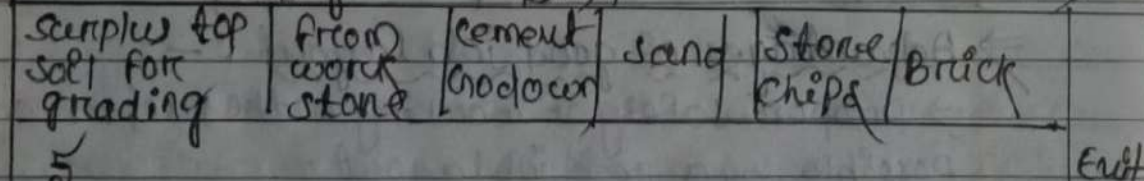 surplus top
soil for
grading
from
work
stone
cement
Godown
sand
stone
chips
Brick
5
Exit